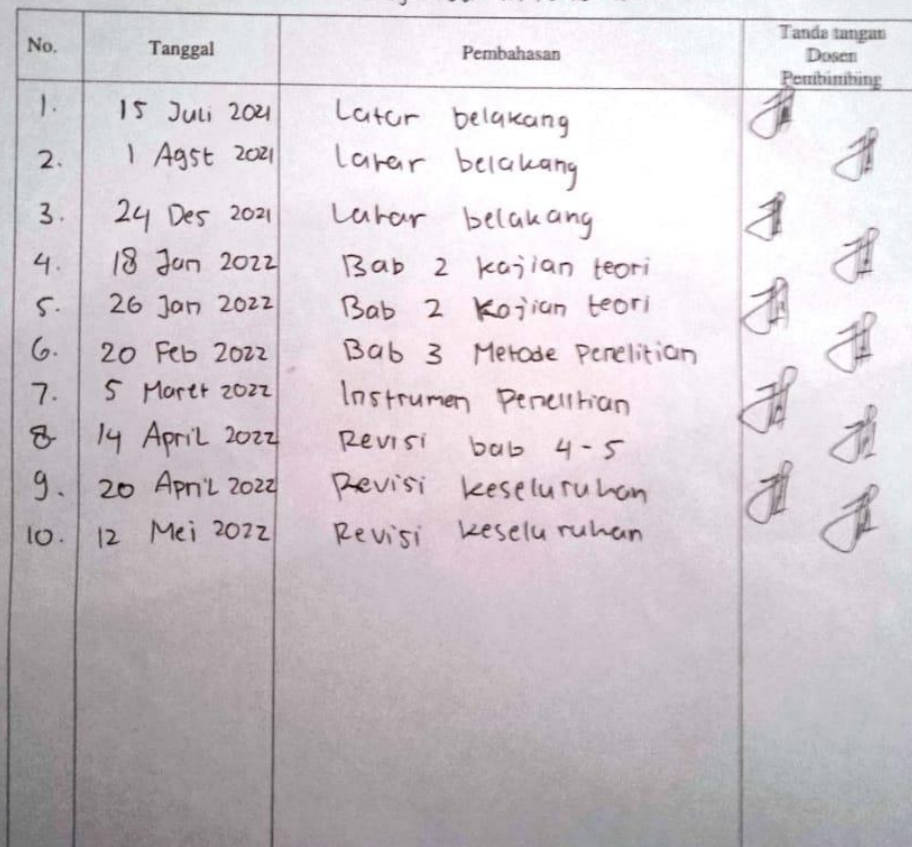 No. Tanggal Pembahasan Tanda tangan
Dosen
Pembimbing
1. 15 Juli 2021 Latar belakang
2. 1 Agst 2021 Latar belakang
3. 24 Des 2021 Latar belakang
4. 18 Jan 2022 Bab 2 kajian teori
5. 26 Jan 2022 Bab 2 Kajian teori
6. 20 Feb 2022 Bab 3 Metode Penelitian
7. 5 Maret 2022 Instrumen Penelitian
8 14 April 2022 Revisi bab 4-5
9. 20 April 2022 Revisi keseluruhan
10. 12 Mei 2022 Revisi keseluruhan